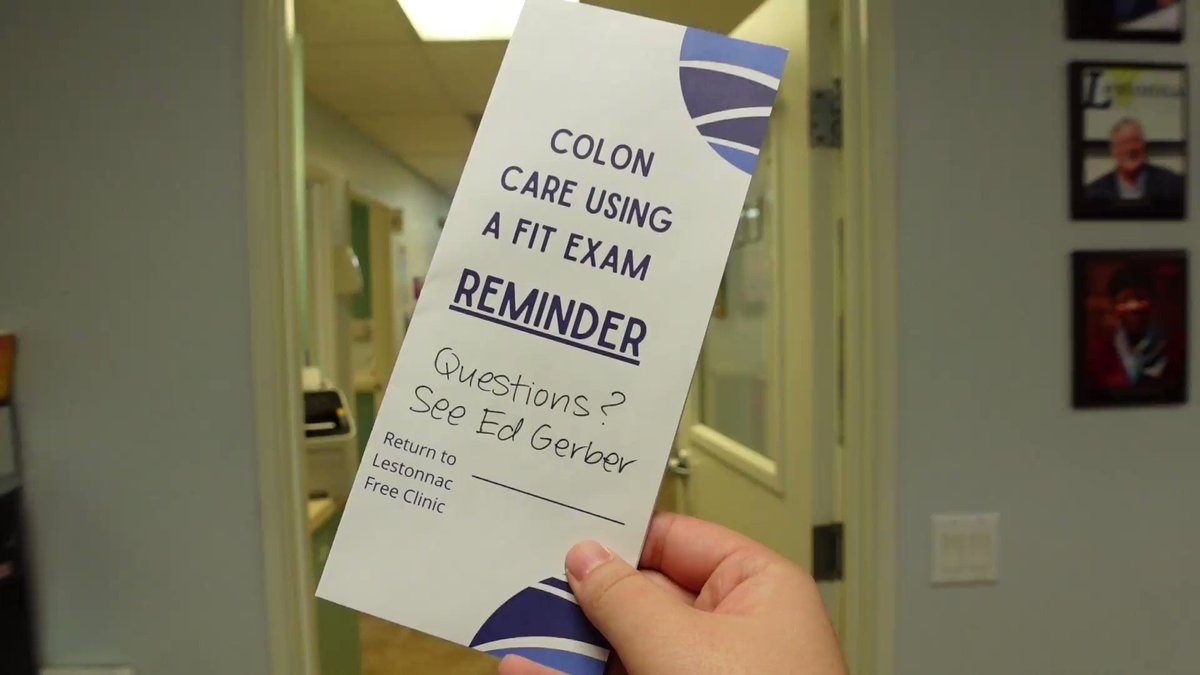 COLON
CARE USING
A FIT EXAM
REMINDER
Questions?
See Ed Gerber
Return to
Lestonnac
Free Clinic